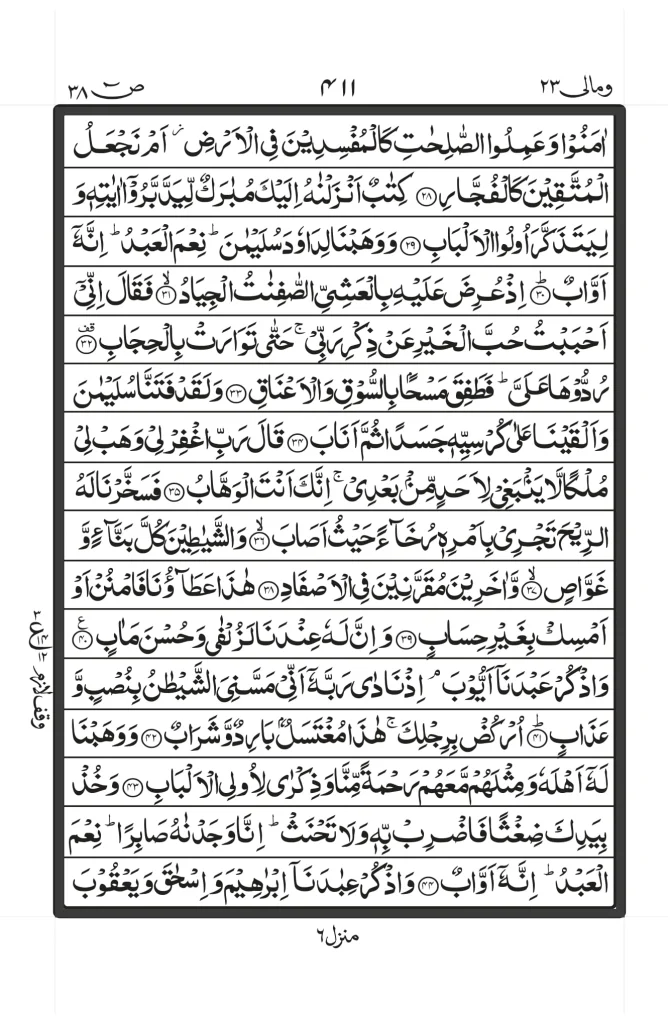 ومالى ٢٣
٤١١
ص ٣٨
اٰمَنُوۡا وَعَمِلُوا الصّٰلِحٰتِ كَالۡمُفۡسِدِيۡنَ فِى الۡاَرۡضِ ز اَمۡ نَجۡعَلُ
الۡمُتَّقِيۡنَ كَالۡفُجَّارِ ﴿۲۸﴾ كِتٰبٌ اَنۡزَلۡنٰهُ اِلَيۡكَ مُبٰرَكٌ لِّيَدَّبَّرُوۡۤا اٰيٰتِهٖ وَ
لِيَتَذَكَّرَ اُولُوا الۡاَلۡبَابِ ﴿۲۹﴾ وَوَهَبۡنَا لِدَاوٗدَ سُلَيۡمٰنَ‌ؕ نِعۡمَ الۡعَبۡدُ‌ؕ اِنَّهٗۤ
اَوَّابٌ ؕ‏﴿۳۰﴾ اِذۡ عُرِضَ عَلَيۡهِ بِالۡعَشِىِّ الصّٰفِنٰتُ الۡجِيَادُ ۙ‏﴿۳۱﴾ فَقَالَ اِنِّىۡۤ
اَحۡبَبۡتُ حُبَّ الۡخَيۡرِ عَنۡ ذِكۡرِ رَبِّىۡ‌ۚ حَتّٰى تَوَارَتۡ بِالۡحِجَابِ ﴿۳۲﴾ قف
رُدُّوۡهَا عَلَىَّ‌ؕ فَطَفِقَ مَسۡحًۢا بِالسُّوۡقِ وَالۡاَعۡنَاقِ ﴿۳۳﴾ وَلَقَدۡ فَتَنَّا سُلَيۡمٰنَ
وَاَلۡقَيۡنَا عَلٰى كُرۡسِيِّهٖ جَسَدًا ثُمَّ اَنَابَ ﴿۳۴﴾ قَالَ رَبِّ اغۡفِرۡ لِىۡ وَهَبۡ لِىۡ
مُلۡكًا لَّا يَنۡۢبَغِىۡ لِاَحَدٍ مِّنۡۢ بَعۡدِىۡ‌ۚ اِنَّكَ اَنۡتَ الۡوَهَّابُ ﴿۳۵﴾ فَسَخَّرۡنَا لَهُ
الرِّيۡحَ تَجۡرِىۡ بِاَمۡرِهٖ رُخَآءً حَيۡثُ اَصَابَ ۙ‏﴿۳۶﴾ وَالشَّيٰطِيۡنَ كُلَّ بَنَّآءٍ وَّ
غَوَّاصٍ ۙ‏﴿۳۷﴾ وَّاٰخَرِيۡنَ مُقَرَّنِيۡنَ فِى الۡاَصۡفَادِ ﴿۳۸﴾ هٰذَا عَطَآؤُنَا فَامۡنُنۡ اَوۡ
اَمۡسِكۡ بِغَيۡرِ حِسَابٍ ﴿۳۹﴾ وَاِنَّ لَهٗ عِنۡدَنَا لَزُلۡفٰى وَحُسۡنَ مَاٰبٍ ﴿۴۰﴾ ع
وَاذۡكُرۡ عَبۡدَنَاۤ اَيُّوۡبَ‌ۘ اِذۡ نَادٰى رَبَّهٗۤ اَنِّىۡ مَسَّنِىَ الشَّيۡطٰنُ بِنُصۡبٍ وَّ
عَذَابٍؕ ﴿۴۱﴾ اُرۡكُضۡ بِرِجۡلِكَ‌ۚ هٰذَا مُغۡتَسَلٌۢ بَارِدٌ وَّشَرَابٌ ﴿۴۲﴾ وَوَهَبۡنَا
لَهٗۤ اَهۡلَهٗ وَمِثۡلَهُمۡ مَّعَهُمۡ رَحۡمَةً مِّنَّا وَذِكۡرٰى لِاُولِى الۡاَلۡبَابِ ﴿۴۳﴾ وَخُذۡ
بِيَدِكَ ضِغۡثًا فَاضۡرِبْ بِّهٖ وَلَا تَحۡنَثۡ‌ؕ اِنَّا وَجَدۡنٰهُ صَابِرًا‌ؕ نِعۡمَ
الۡعَبۡدُ‌ؕ اِنَّهٗۤ اَوَّابٌ ﴿۴۴﴾ وَاذۡكُرۡ عِبٰدَنَاۤ اِبۡرٰهِيۡمَ وَاِسۡحٰقَ وَيَعۡقُوۡبَ
وقف لازم
منزل ٦